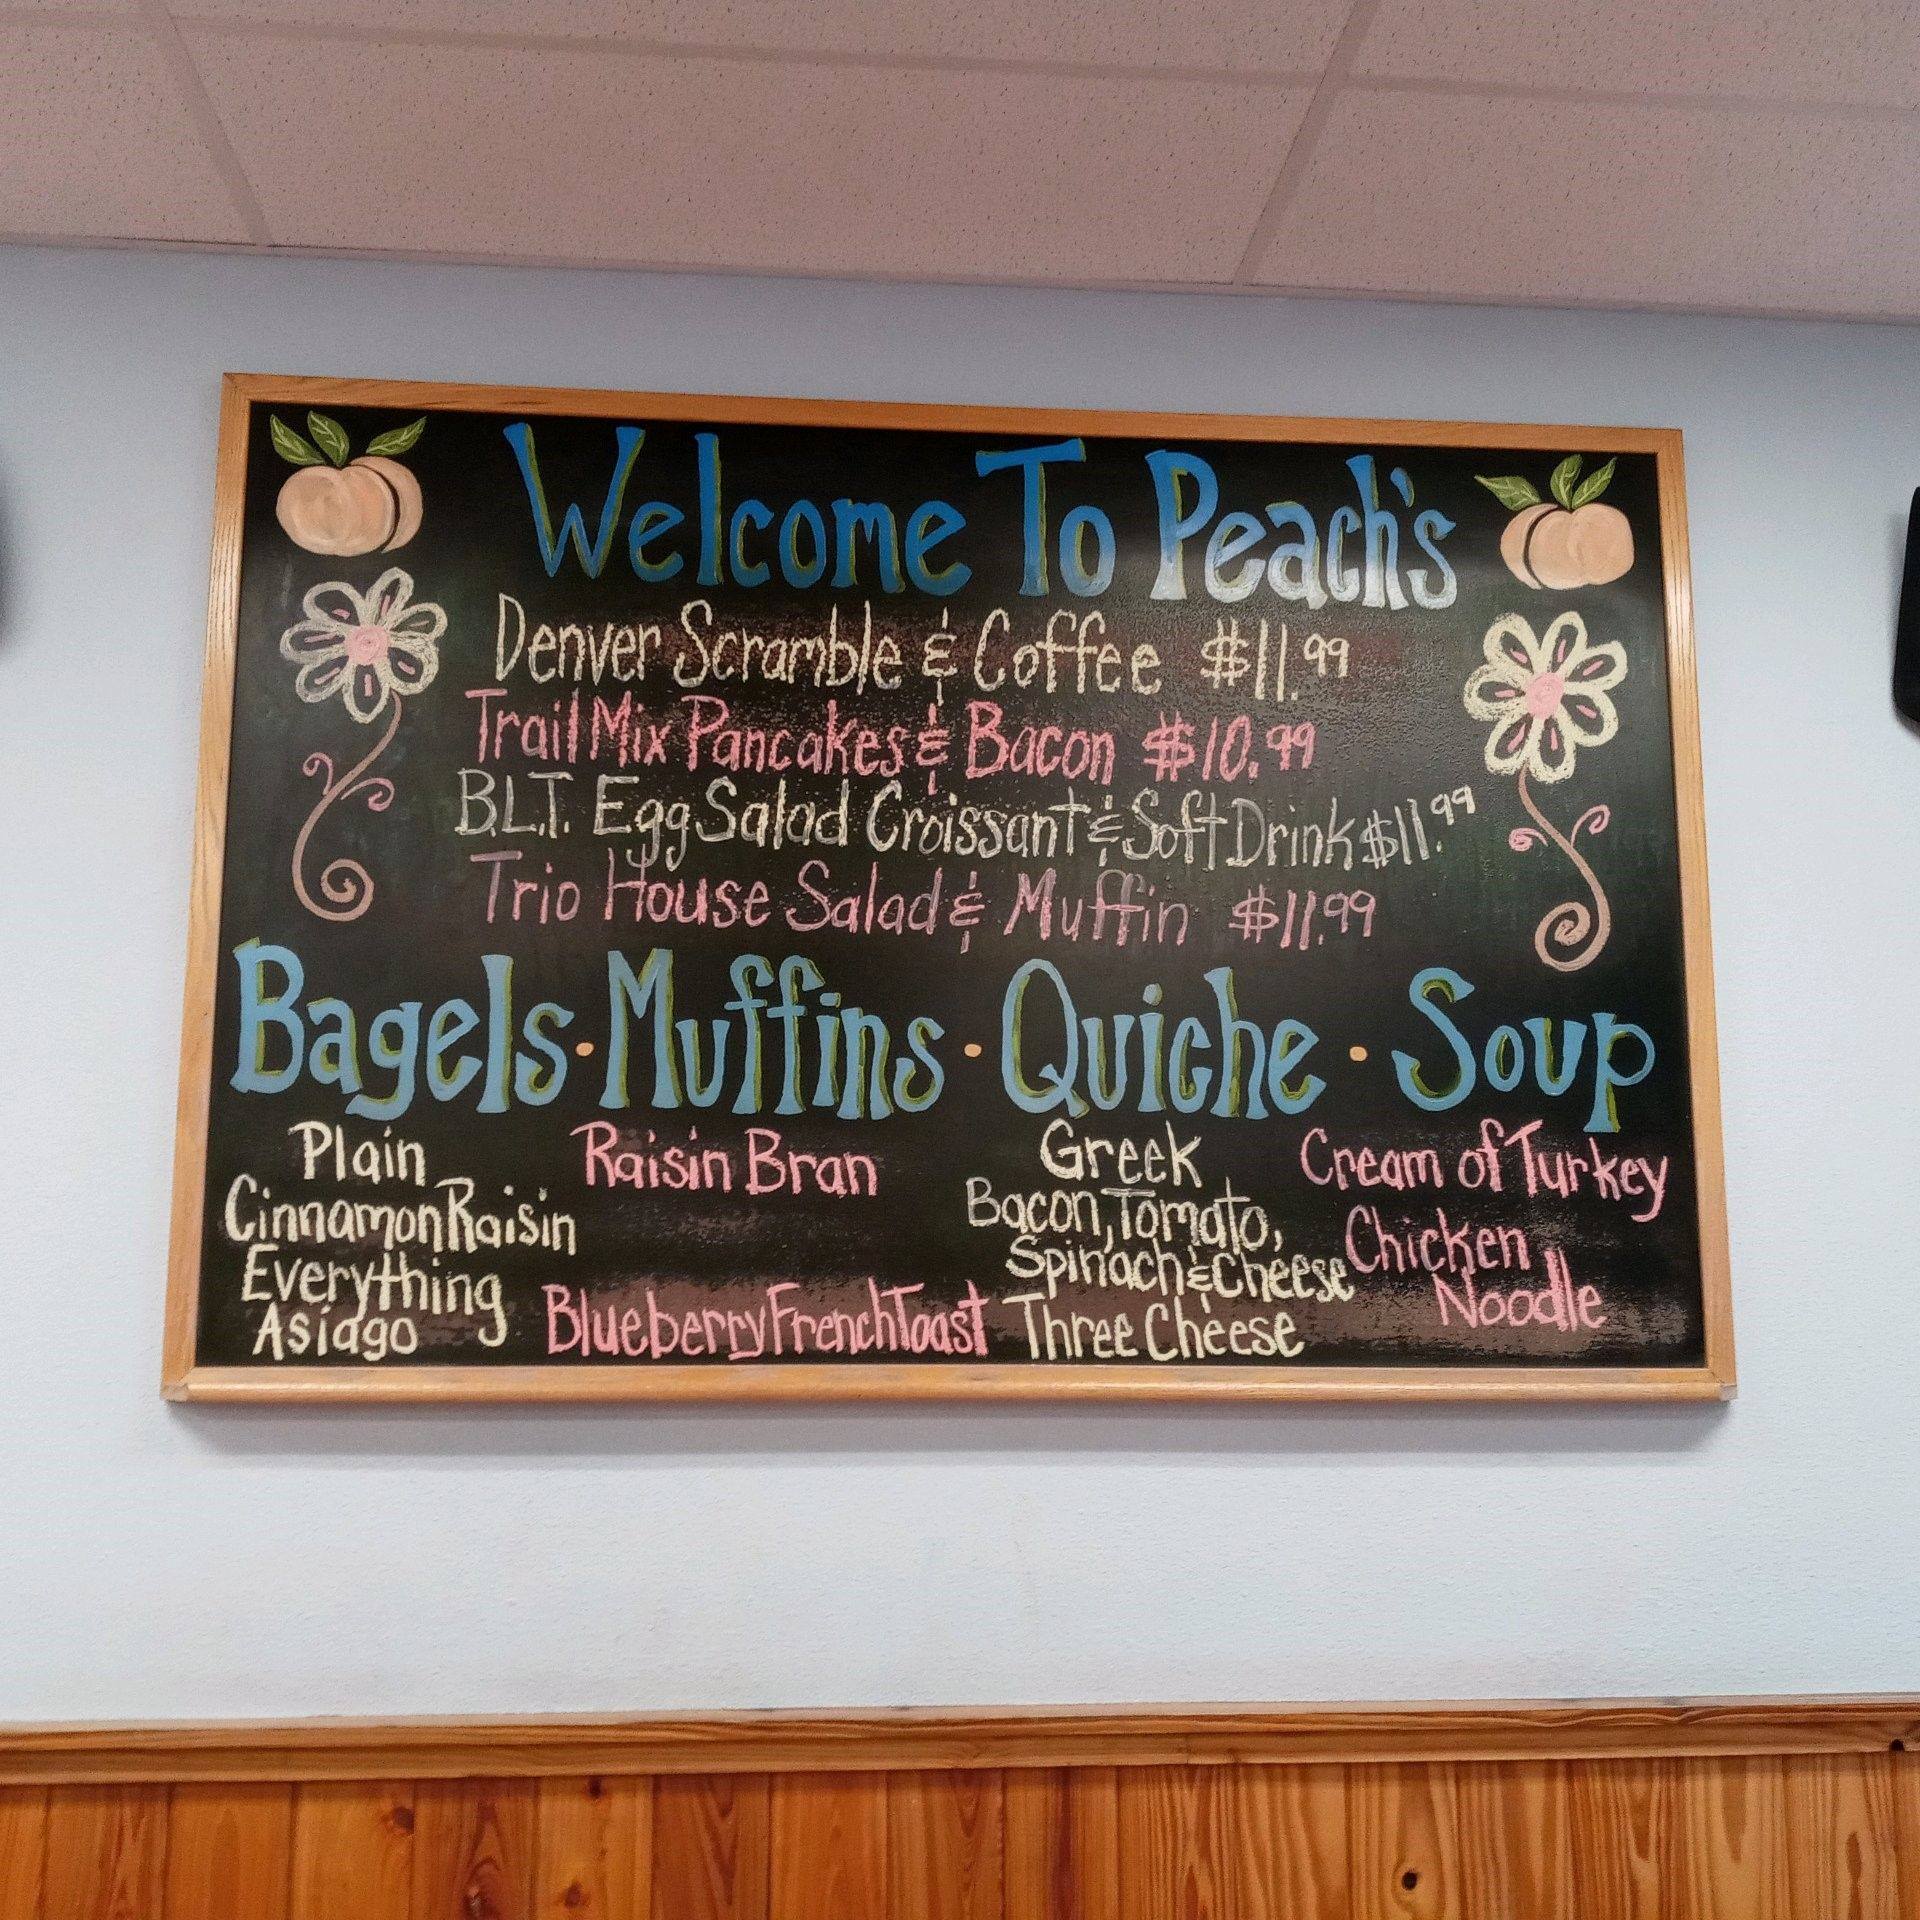 Welcome To Peach's
Denver Scramble & Coffee $11.99
Trail Mix Pancakes & Bacon $10.99
B.L.T. Egg Salad Croissant & Soft Drink $11.99
Trio House Salad & Muffin $11.99
Bagels · Muffins · Quiche · Soup
Plain
Cinnamon Raisin
Everything
Asiago
Raisin Bran
Blueberry French Toast
Greek
Bacon, Tomato,
Spinach & Cheese
Three Cheese
Cream of Turkey
Chicken
Noodle